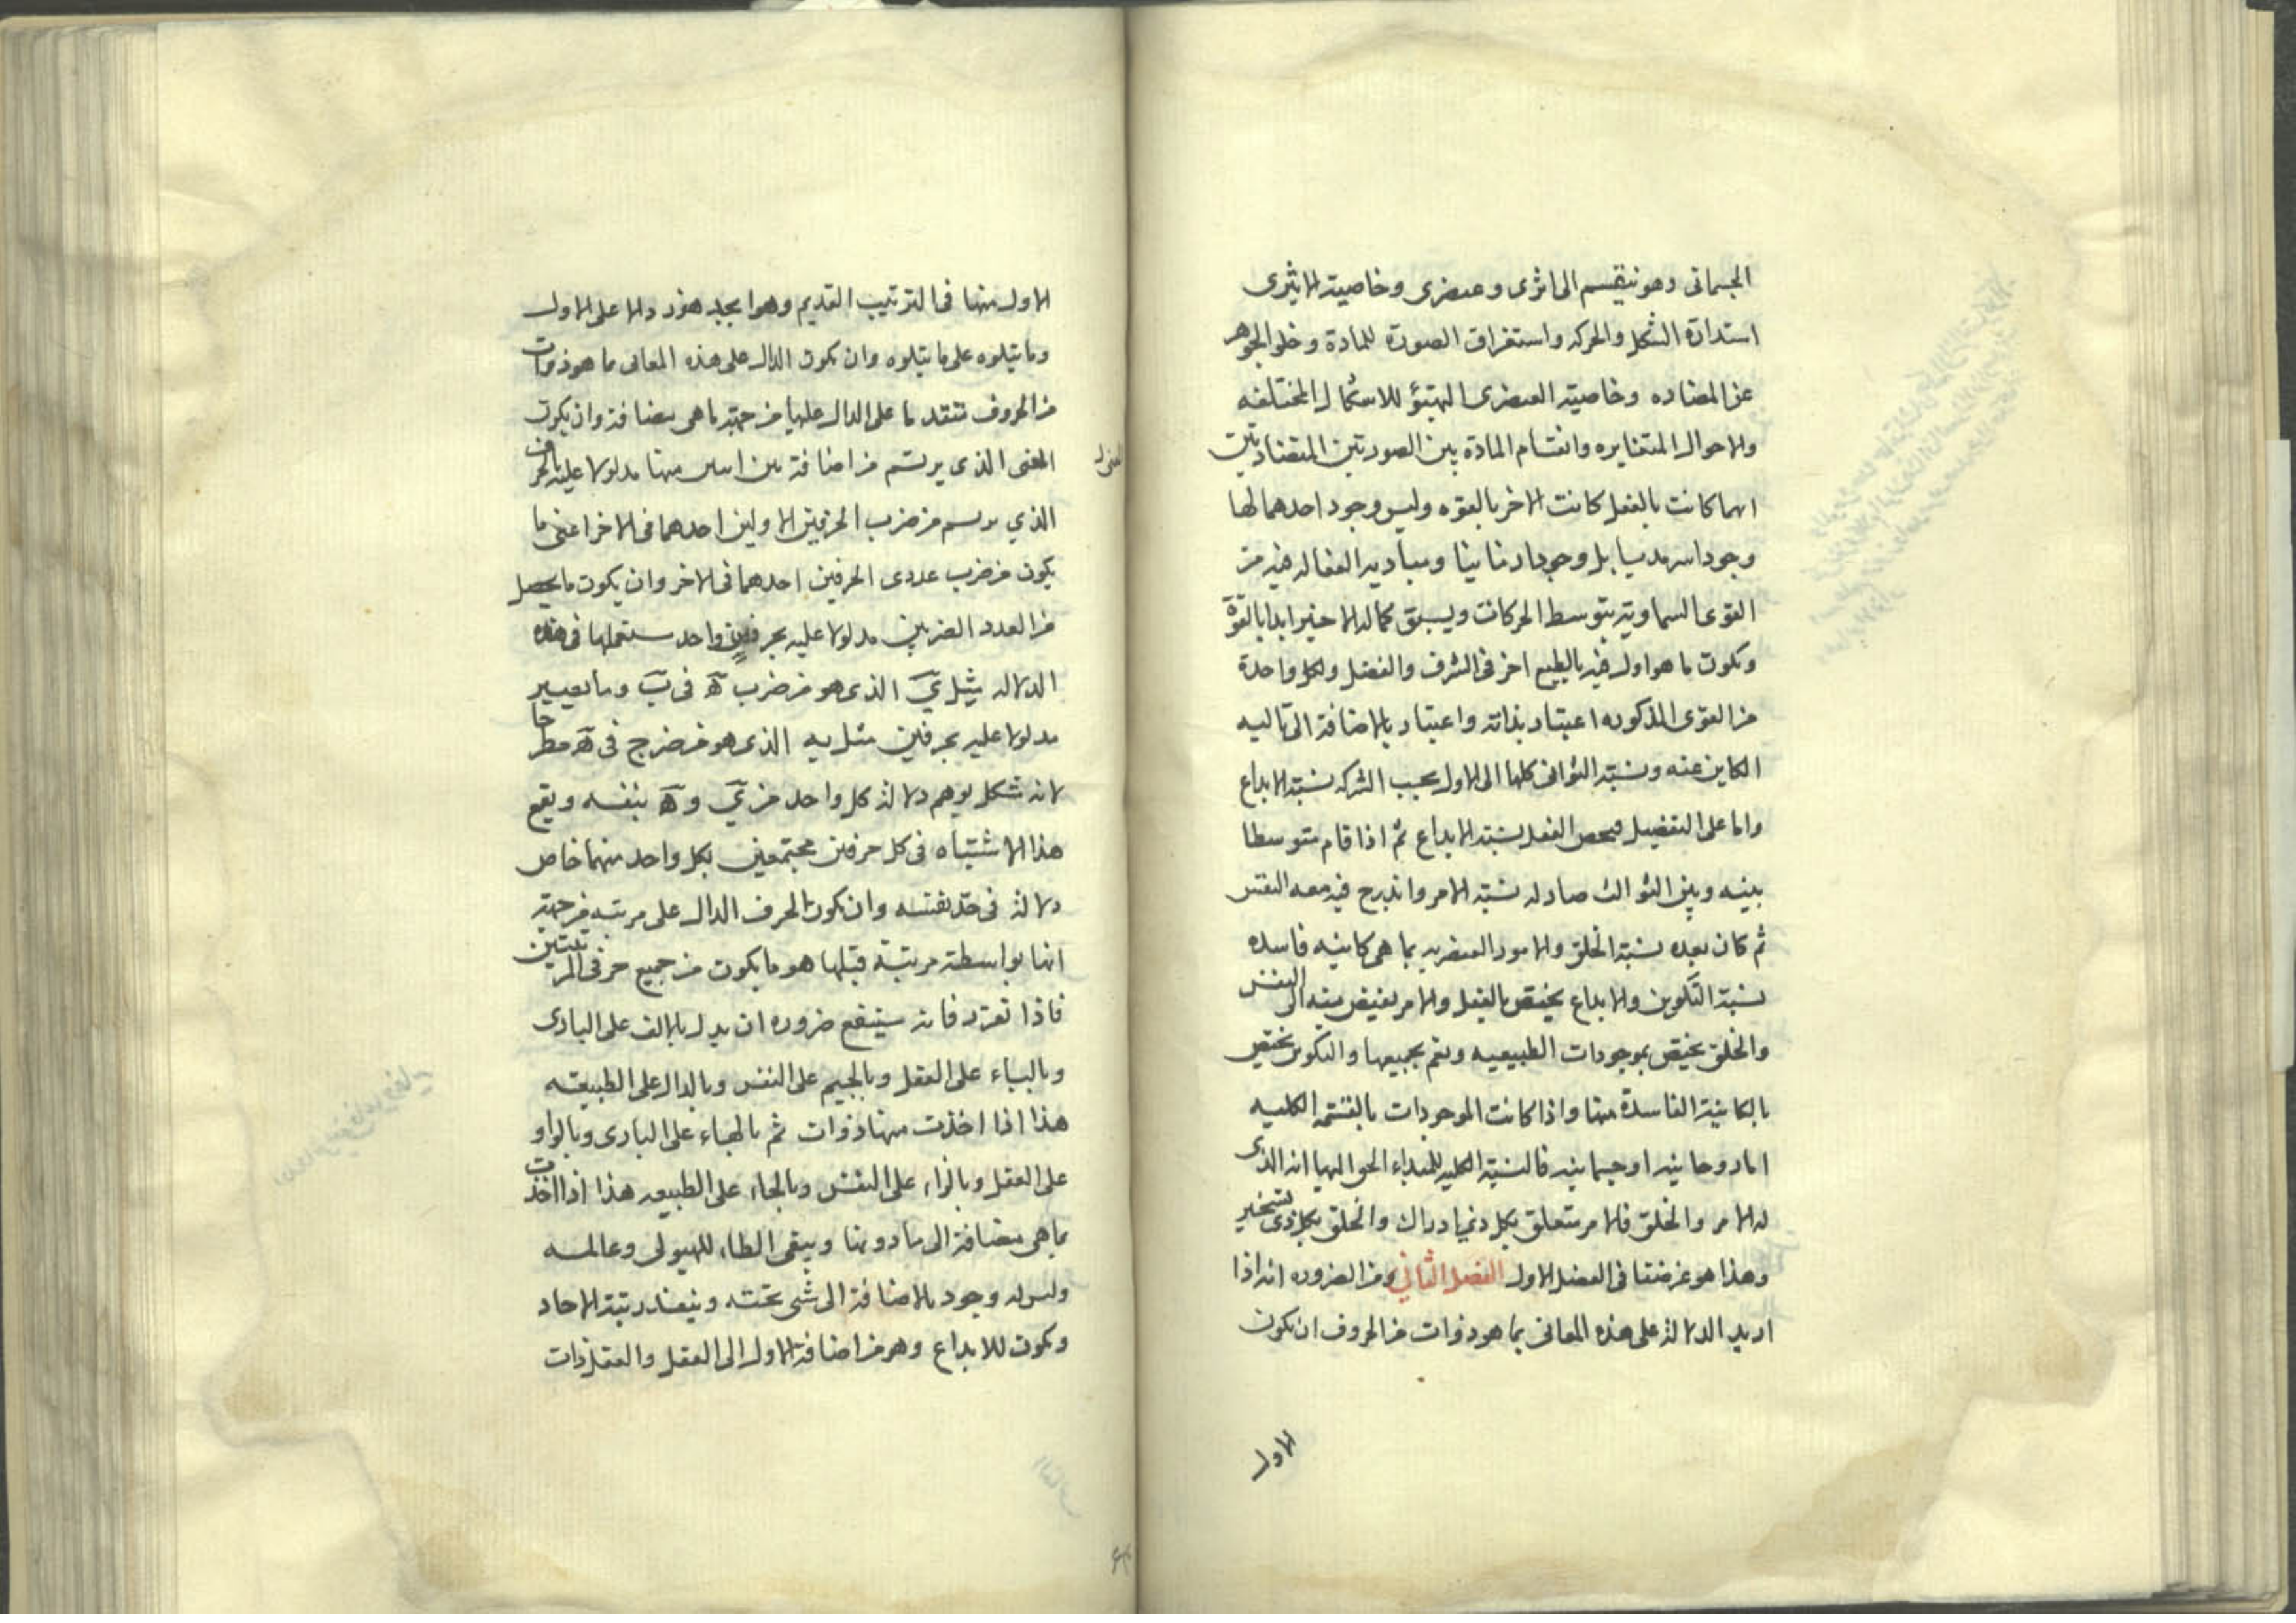 الجسمانى وهو ينقسم الى اثرى وعنصرى وخاصية الاثيرى
استدارة الشكل والحركه واستغراق الصورة للمادة وخلو الجوهر
عن المضاده وخاصية العنصرى التهيؤ للاشكال المختلفه
والاحوال المتغايره وانقسام المادة بين الصورتين المتضادتين
ايهما كانت بالفعل كانت الاخر بالقوه وليس وجود احدهما لها
وجودا سرمديا بل وجودا زمانيا ومباديه الفعاله فيه من
القوى السماوية بتوسط الحركات ويسبق كماله الاخير ابدا بالقوة
ويكون ما هو اول فيه بالطبع اخر فى الشرف والفضل ولكل واحدة
من القوى المذكوره اعتبار بذاته واعتبار بالاضافة الى تاليه
الكاين عنه ونسبة الثوانى كلها الى الاول بحسب الشركه نسبة الابداع
واما على التفضيل فيخص العقل نسبة الابداع ثم اذا قام متوسطا
بينه وبين الثوالث صار له نسبة الامر واندرج فيه معه النفس
ثم كان بعده نسبة الخلق والامور العنصريه بما هى كاينه فاسده
نسبة التكوين والابداع يختص بالعقل والامر يفيض منه الى النفس
والخلق يختص بموجودات الطبيعيه ويعم بجميعها والتكوين يختص
بالكاينة الفاسدة منها واذا كانت الموجودات بالقسمة الكليه
اما روحانيه او جسمانيه فالنسبة الكليه للمبداء الحق اليها انه الذى
له الامر والخلق فالامر متعلق بكل ذى ادراك والخلق بكل ذى تسخير
وهذا هو غرضنا فى الفصل الاول الفصل الثاني ومن الضروره انه اذا
اريد الدلالة على هذه المعانى بما هو ذوات من الحروف ان يكون
الاول
الاول منها فى الترتيب القديم وهو ابجد هوز دالا على الاول
وما يتلوه على ما يتلوه وان يكون الدال على هذه المعانى ما هو ذوات
من الحروف متقدما على الدال عليها من جهة ما هى مضافة وان يكون
المعنى الذى يرتسم من اضافة بين اسن منها مدلولا عليه بالحرف
الذي يرسم من ضرب الحرفين الاولين احدهما فى الاخر اعنى ما
يكون من ضرب عددى الحرفين احدهما فى الاخر وان يكون ما يحصل
من العدد الضربى مدلولا عليه بحرف واحد مستعملها فى هذه
الدلاله مثل ي الذى هو من ضرب ه فى ب وما يصير
مدلولا عليه بحرفين مثل يه الذى هو من ضرب ج فى ه مطرحا
لانه شكل يوهم دلالة كل واحد من ي و ه بنفسه ويقع
هذا الاشتباه فى كل حرفين مجتمعين بكل واحد منهما خاص
دلالة فى حد نفسه وان يكون الحرف الدال على مرتبه من جهة
انها بواسطة مرتبة قبلها هو ما يكون من جميع حرفى المرتبتين
فاذا تقرر فانه ينبغى ضروره ان يدل بالالف على البارى
وبالباء على العقل وبالجيم على النفس وبالدال على الطبيعه
هذا اذا اخذت منها ذوات ثم بالهاء على البارى وبالواو
على العقل وبالزاء على النفس وبالحاء على الطبيعه هذا اذا اخذت
بما هى مضافة الى ما دونها ويبقى الطاء للهيولى وعالمه
وليس له وجود بالاضافة الى شى تحته وينفد رتبة الاحاد
ويكون للابداع وهو من اضافة الاول الى العقل والعقل ذات